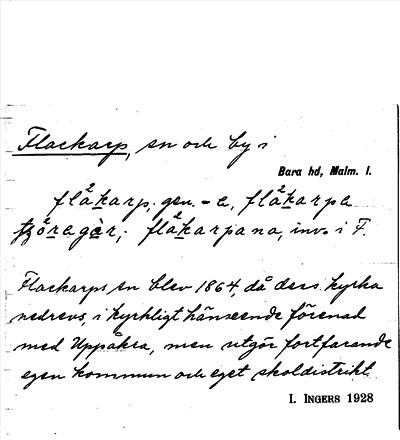 Flackarp, sn och by i
Bara hd, Malm. l.
flåkarp, gen. -a, flåkarpa
flåkarpana, inv. i F.
Flackarps sn blev 1864, då dess kyrka
nedrevs, i kyrkligt hänseende förenad
med Uppåkra, men utgör fortfarande
egen kommun och eget skoldistrikt.
I. INGERS 1928